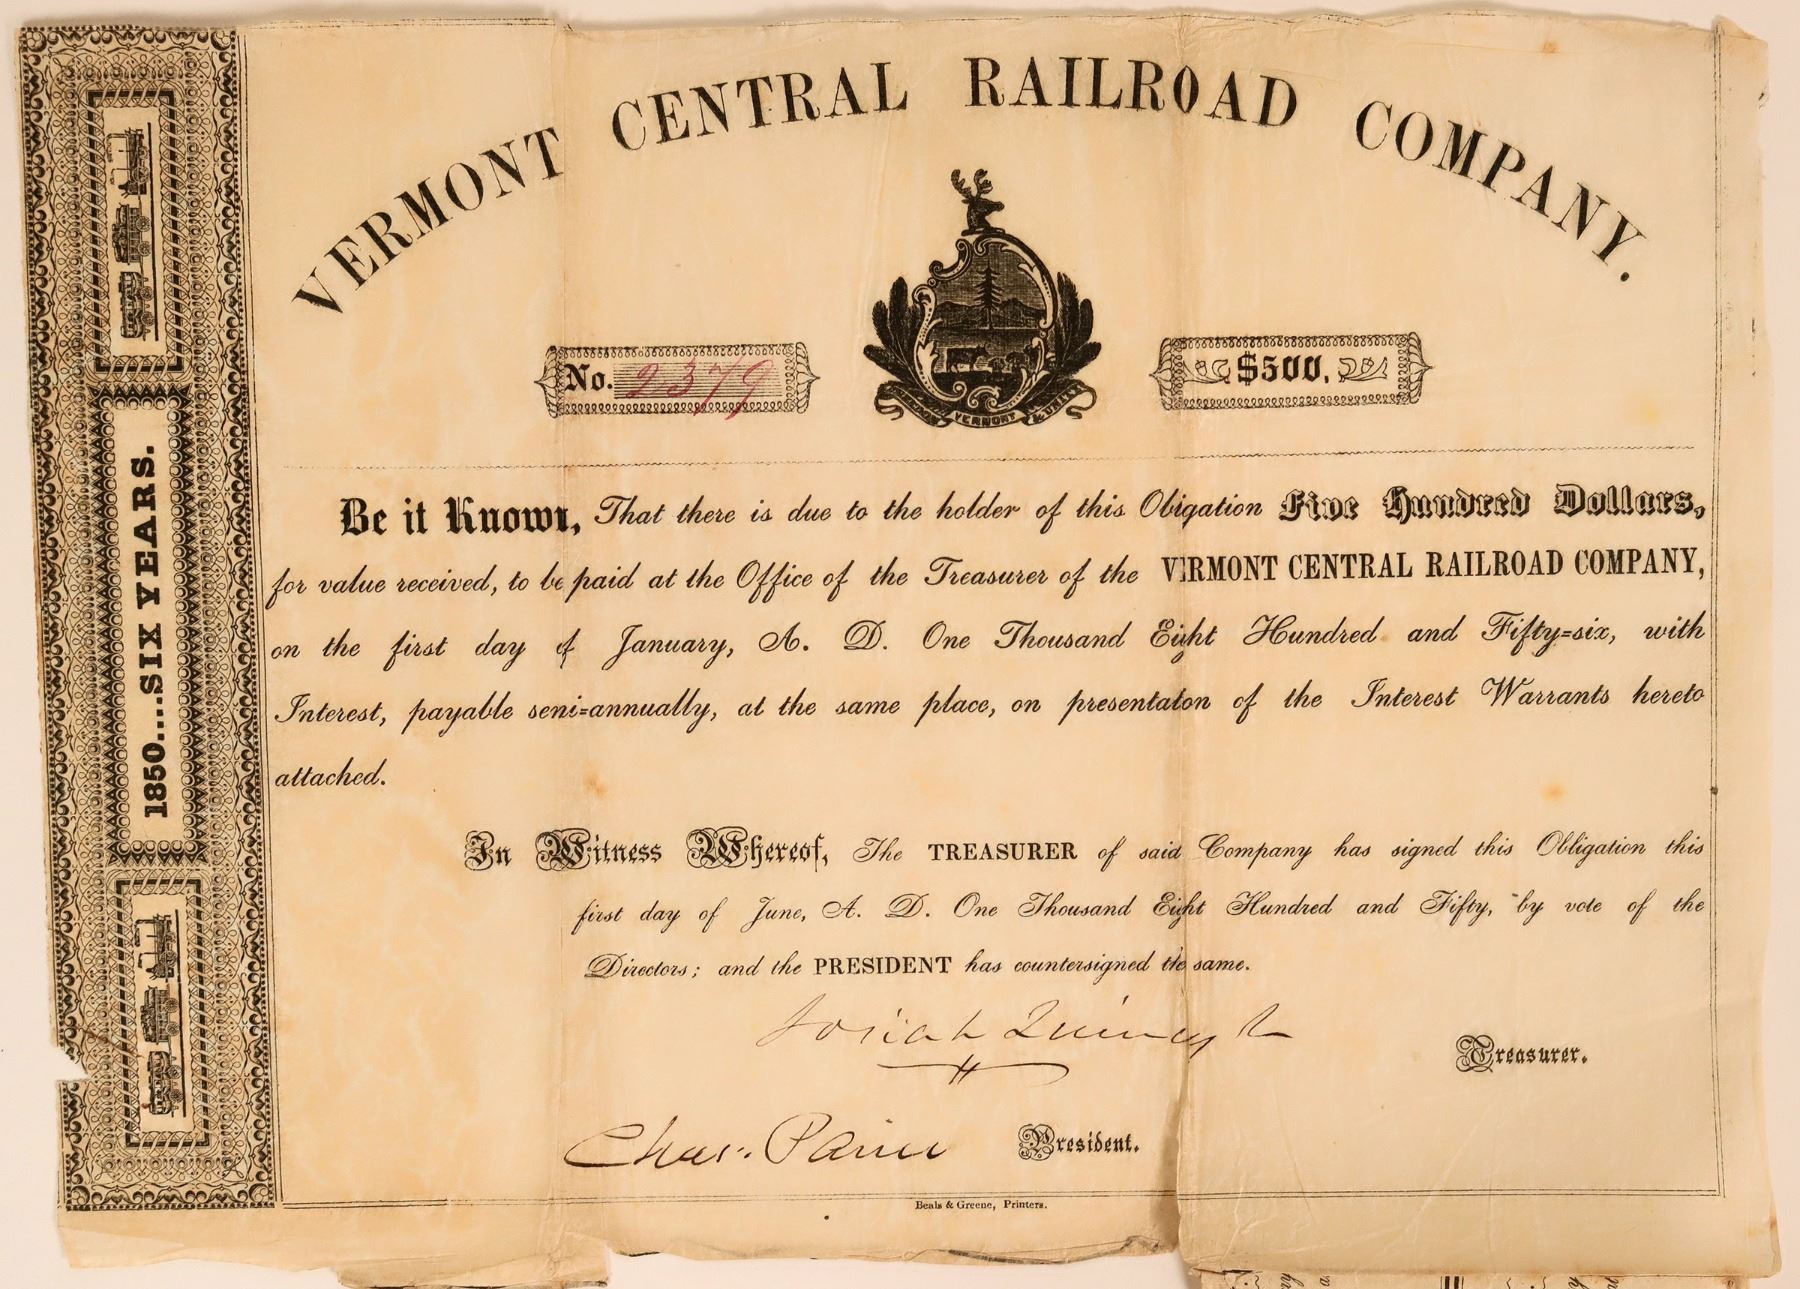 VERMONT CENTRAL RAILROAD COMPANY.
No. 2379
$500.
VERMONT & UNITY
1850....SIX YEARS.
Be it Known, That there is due to the holder of this Obligation Five Hundred Dollars,
for value received, to be paid at the Office of the Treasurer of the VERMONT CENTRAL RAILROAD COMPANY,
on the first day of January, A. D. One Thousand Eight Hundred and Fifty=six, with
Interest, payable semi=annually, at the same place, on presentation of the Interest Warrants hereto
attached.
In Witness Whereof, The TREASURER of said Company has signed this Obligation this
first day of June, A. D. One Thousand Eight Hundred and Fifty, by vote of the
Directors; and the PRESIDENT has countersigned the same.
Josiah Quincy Jr
Treasurer.
Chas. Paine
President.
Beals & Greene, Printers.